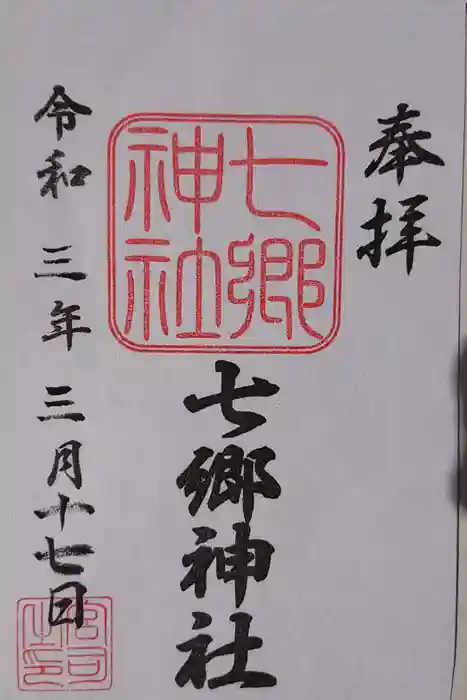 奉拝
七郷
神社
七郷神社
令和三年三月十七日
宮司之印